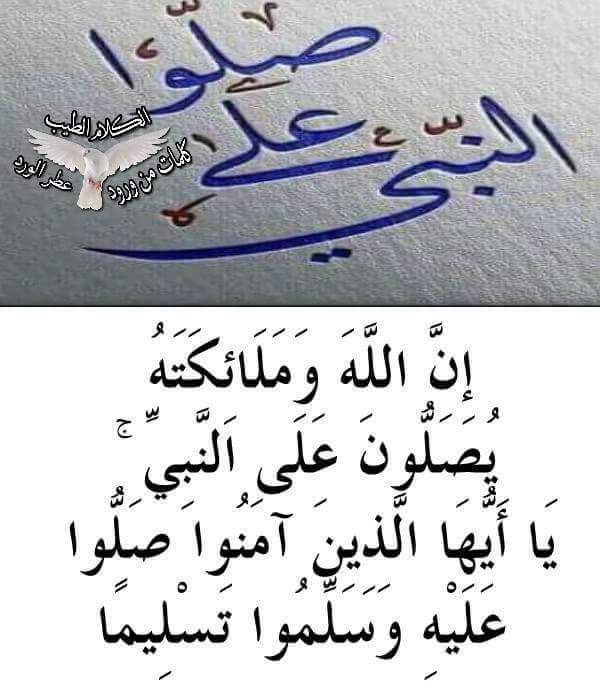 صلّوا
على
النّبيّ
الكلام الطيب
كلمات من ورود
عطر الورد
إِنَّ اللَّهَ وَمَلَائِكَتَهُ
يُصَلُّونَ عَلَى النَّبِيِّ ۚ
يَا أَيُّهَا الَّذِينَ آمَنُوا صَلُّوا
عَلَيْهِ وَسَلِّمُوا تَسْلِيمًا